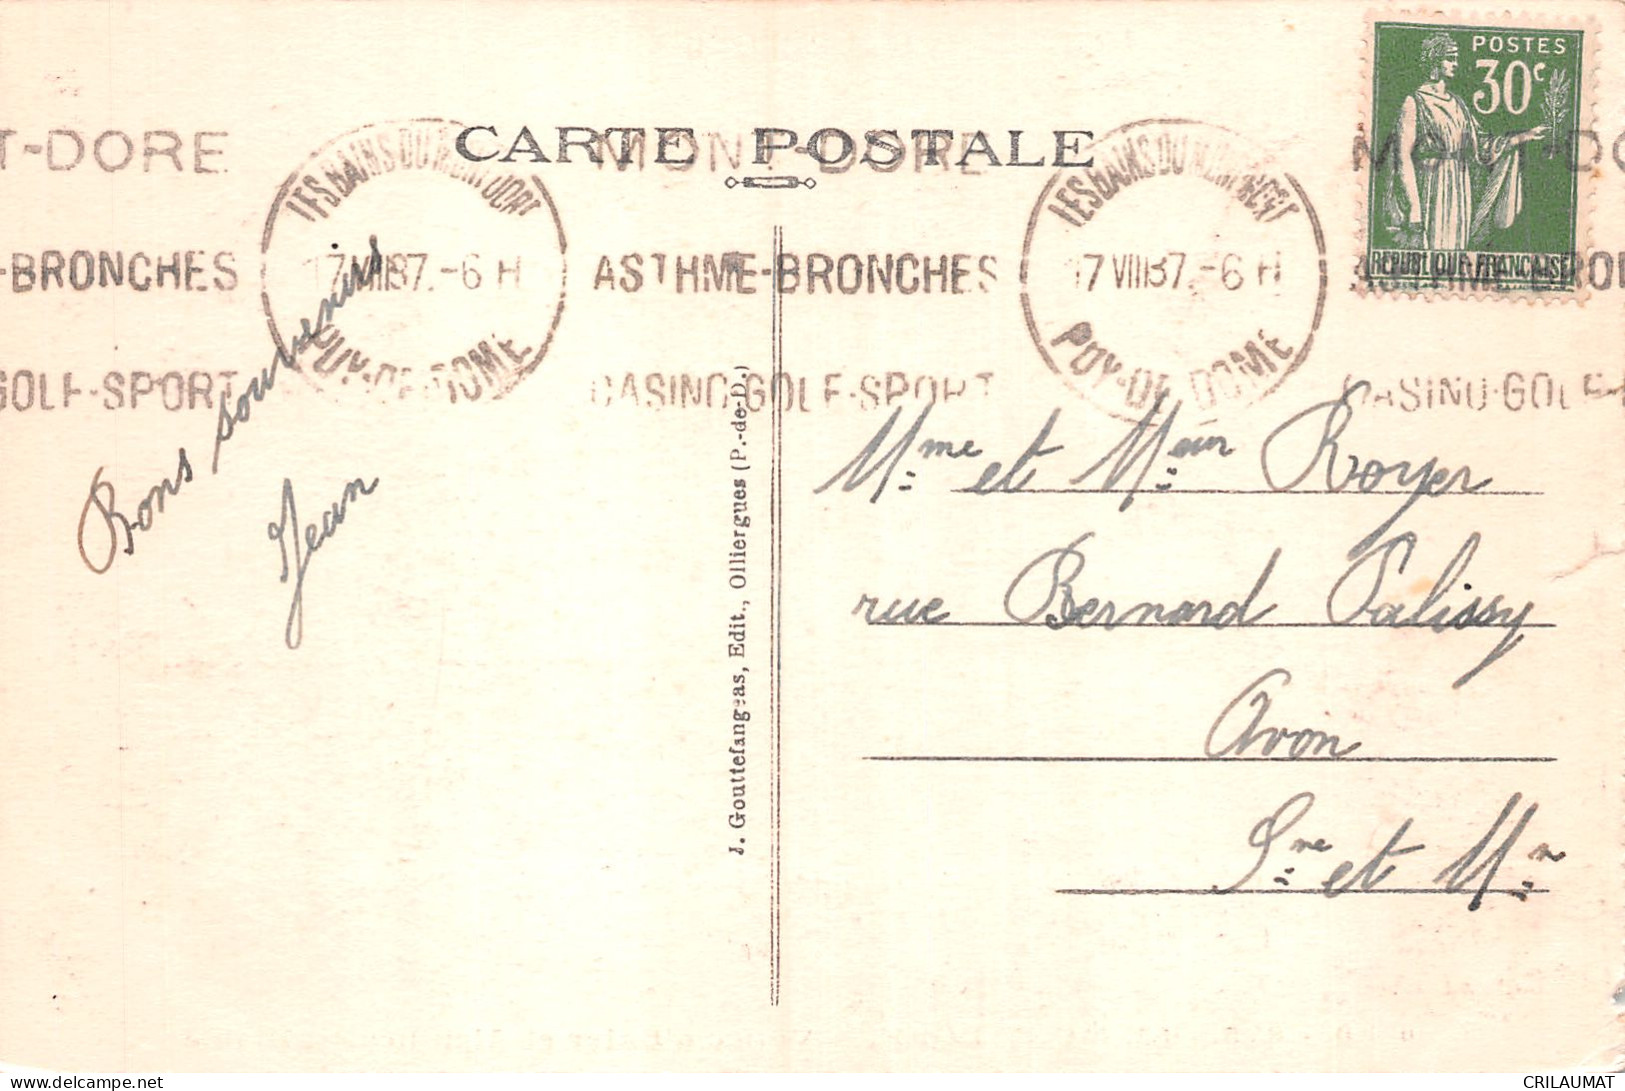 CARTE POSTALE
POSTES
30c
REPUBLIQUE FRANCAISE
T-DORE
MONT-DORE
MONT-DO
-BRONCHES
ASTHME-BRONCHES
ASTHME-BRON
GOLF-SPORT
CASINO-GOLF-SPORT
CASINO-GOLF-
LES BAINS DU MONT DORE
17 VIII 37.-6 H
PUY-DE-DOME
LES BAINS DU MONT DORE
17 VIII 37.-6 H
PUY-DE-DOME
Bons souvenirs
Jean
J. Gouttefangeas, Edit., Olliergues (P.-de-D.)
Mme et Meur Royer
rue Bernard Palissy
Avon
Sne et Mn
CRILAUMAT